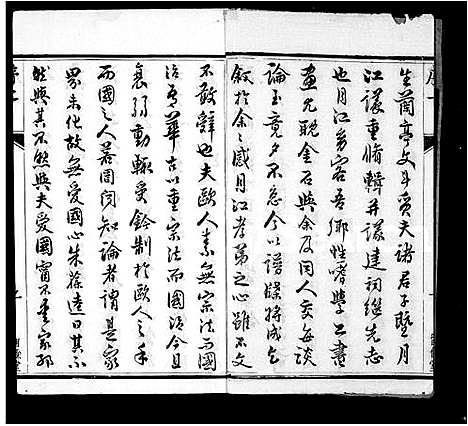 生蘭亭文斗贡夫諸君子暨月
江議重脩輯并議建祠繼先志
也月江多客吾鄉性嗜學工書
畫尤耽金石與余友同人交每談
論至竟夕不忘今以譜牒將成乞
敘於余余感月江孝弟之心雖不文
不敢辭也夫歐人素無宗法而國
治吾華古以重宗法而國治今日
衰弱動輒受鈐制於歐人之手
而國之人若罔聞知論者謂是家
界未化故無愛國心朱葆逵曰其不
然與其不然與夫愛國當不重家邪